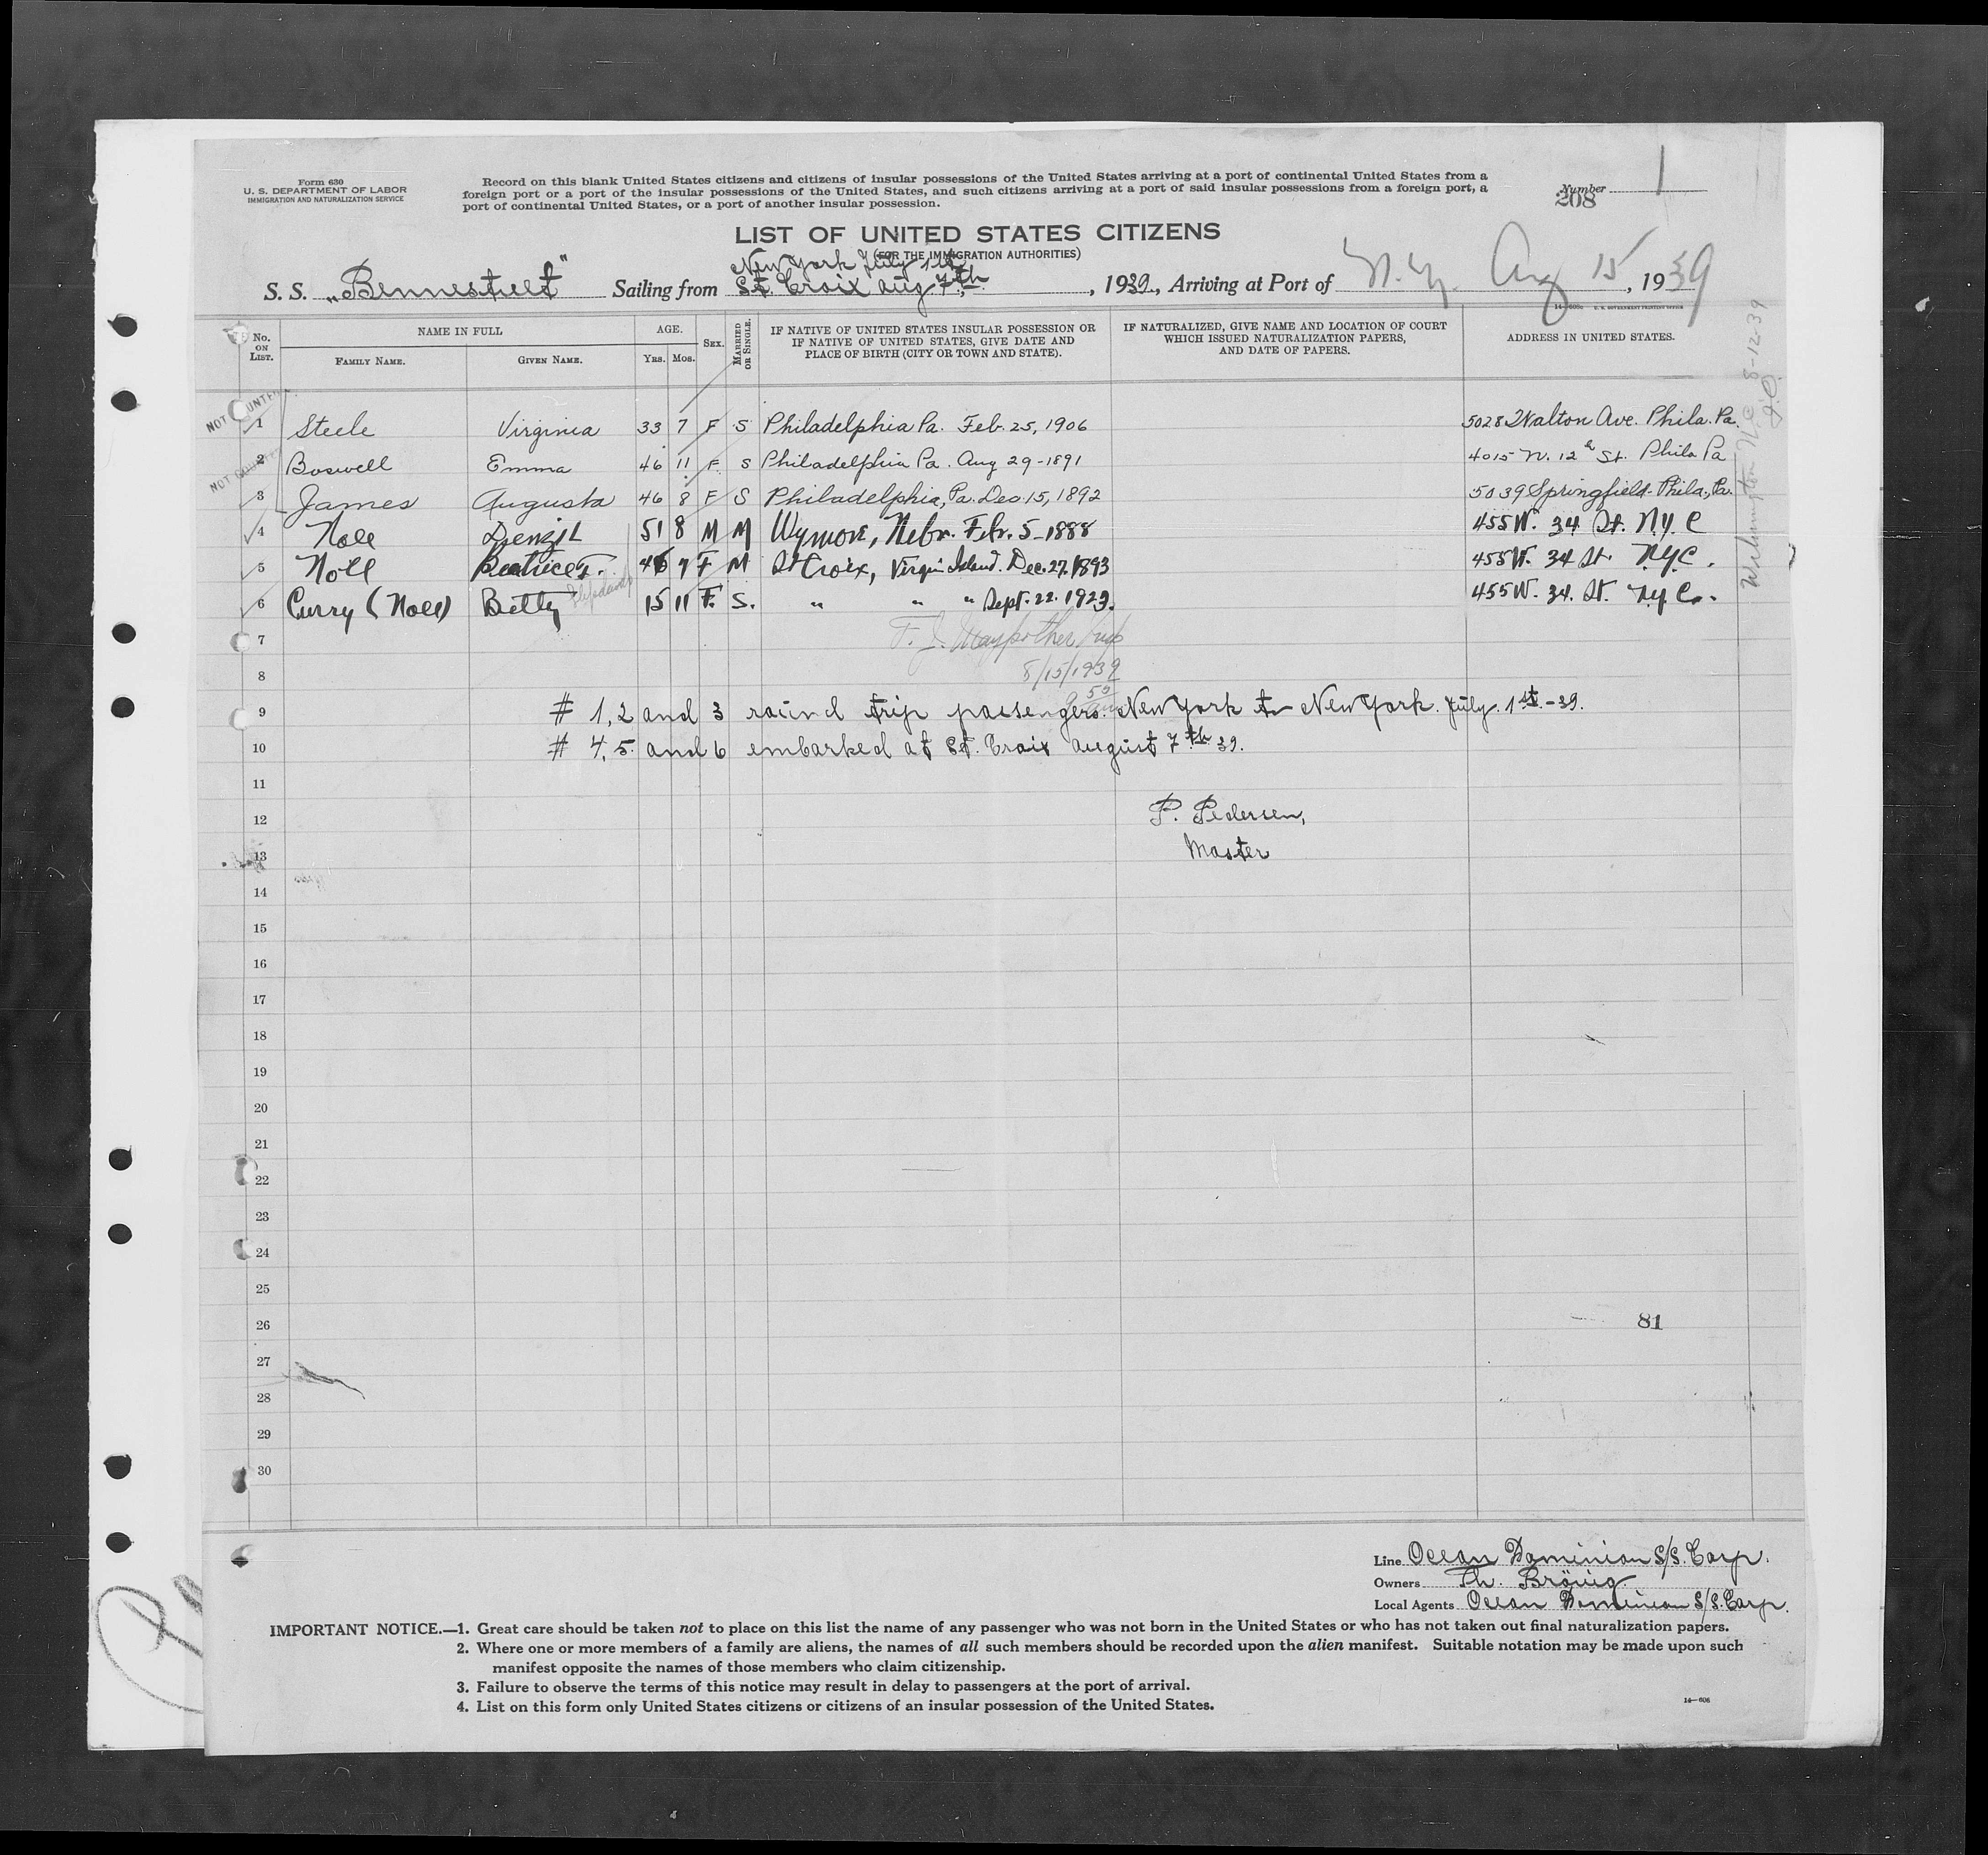 Form 630
U. S. DEPARTMENT OF LABOR
IMMIGRATION AND NATURALIZATION SERVICE
Record on this blank United States citizens and citizens of insular possessions of the United States arriving at a port of continental United States from a
foreign port or a port of the insular possessions of the United States, and such citizens arriving at a port of said insular possessions from a foreign port, a
port of continental United States, or a port of another insular possession.
Number 1
208
LIST OF UNITED STATES CITIZENS
(FOR THE IMMIGRATION AUTHORITIES)
New York July 1st
S. S. „Bennestvet" Sailing from St. Croix Aug 7th, 1939, Arriving at Port of N.Y. Aug 15, 1939
14—606 U. S. GOVERNMENT PRINTING OFFICE
No. ON LIST. NAME IN FULL FAMILY NAME. GIVEN NAME. AGE. YRS. MOS. SEX. MARRIED OR SINGLE. IF NATIVE OF UNITED STATES INSULAR POSSESSION OR IF NATIVE OF UNITED STATES, GIVE DATE AND PLACE OF BIRTH (CITY OR TOWN AND STATE). IF NATURALIZED, GIVE NAME AND LOCATION OF COURT WHICH ISSUED NATURALIZATION PAPERS, AND DATE OF PAPERS. ADDRESS IN UNITED STATES.
NOT COUNTED
1 Steele Virginia 33 7 F S Philadelphia Pa. Feb. 25, 1906 5028 Walton Ave. Phila. Pa.
NOT COUNTED
2 Boswell Emma 46 11 F. S Philadelphia Pa. Aug 29-1891 4015 N. 12th St. Phila Pa
3 James Augusta 46 8 F S Philadelphia, Pa. Dec. 15, 1892 5039 Springfield. Phila., Pa.
4 Noll Denzil 51 8 M M Wymore, Nebr. Febr. 5-1888 455 W. 34 St. N.Y.C
5 Noll Beatrice T. 45 7 F M St Croix, Virgin Island. Dec. 27. 1893 455 W. 34 St. N.Y.C.
6 Curry (Noll) Betty 15 11 F. S. " " " Sept. 22. 1923. 455 W. 34. St. N.Y.C.
Wilmington N.C. 8-12-39
7
8 8/15/1939
9 # 1, 2 and 3 round trip passengers New York to New York. July. 1st.-39.
10 # 4, 5. and 6 embarked at St. Croix august 7th 39.
11
12 P. Pedersen,
13 Master
14
15
16
17
18
19
20
21
22
23
24
25
26 81
27
28
29
30
Line Ocean Dominion S/S. Corp.
Owners Th. Brövig.
Local Agents Ocean Dominion S/S. Corp.
IMPORTANT NOTICE.—1. Great care should be taken not to place on this list the name of any passenger who was not born in the United States or who has not taken out final naturalization papers.
2. Where one or more members of a family are aliens, the names of all such members should be recorded upon the alien manifest. Suitable notation may be made upon such
manifest opposite the names of those members who claim citizenship.
3. Failure to observe the terms of this notice may result in delay to passengers at the port of arrival.
4. List on this form only United States citizens or citizens of an insular possession of the United States.
14—606